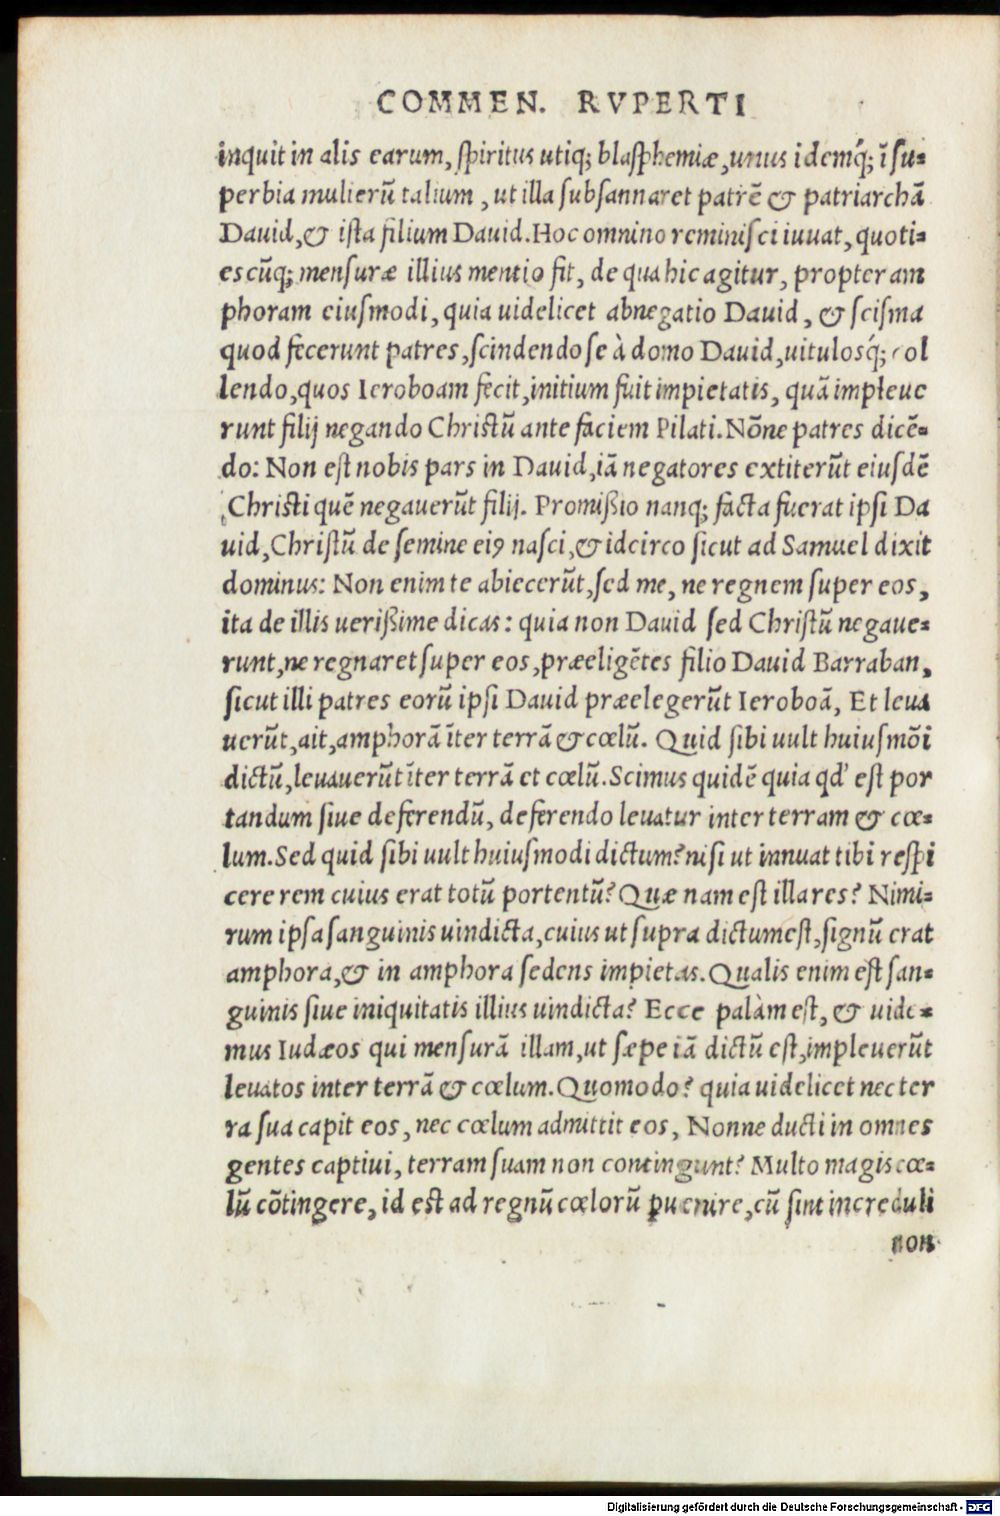 COMMEN. RVPERTI
inquit in alis earum, ſpiritus utiq; blaſphemiæ, unus idemq́; ĩ ſu-
perbia mulierũ talium, ut illa ſubſannaret patrẽ & patriarchã
Dauid, & iſta filium Dauid. Hoc omnino reminiſci iuuat, quoti-
eſcũq; menſuræ illius mentio fit, de qua hic agitur, propter am
phoram eiuſmodi, quia uidelicet abnegatio Dauid, & ſciſma
quod fecerunt patres, ſcindendo ſe à domo Dauid, uitulosq́; col
lendo, quos Ieroboam fecit, initium fuit impietatis, quã impleue
runt filij negando Chriſtũ ante faciem Pilati. Nõne patres dicẽ-
do: Non eſt nobis pars in Dauid, iã negatores extiterũt eiuſdẽ
Chriſti quẽ negauerũt filij. Promißio nanq; facta fuerat ipſi Da
uid, Chriſtũ de ſemine eiꝰ naſci, & idcirco ſicut ad Samuel dixit
dominus: Non enim te abiecerũt, ſed me, ne regnem ſuper eos,
ita de illis uerißime dicas: quia non Dauid ſed Chriſtũ negaue-
runt, ne regnaret ſuper eos, præeligẽtes filio Dauid Barraban,
ſicut illi patres eorũ ipſi Dauid præelegerũt Ieroboã, Et leua
uerũt, ait, amphorã ĩter terrã & cœlũ. Quid ſibi uult huiuſmõi
dictũ, leuauerũt ĩter terrã et cœlũ. Scimus quidẽ quia qd' eſt por
tandum ſiue deferendũ, deferendo leuatur inter terram & cœ-
lum. Sed quid ſibi uult huiuſmodi dictum? niſi ut innuat tibi reſpi
cere rem cuius erat totũ portentũ? Quæ nam eſt illa res? Nimi-
rum ipſa ſanguinis uindicta, cuius ut ſupra dictum eſt, ſignũ erat
amphora, & in amphora ſedens impietas. Qualis enim eſt ſan-
guinis ſiue iniquitatis illius uindicta? Ecce palàm eſt, & uide-
mus Iudæos qui menſurã illam, ut ſæpe iã dictũ eſt, impleuerũt
leuatos inter terrã & cœlum. Quomodo? quia uidelicet nec ter
ra ſua capit eos, nec cœlum admittit eos, Nonne ducti in omnes
gentes captiui, terram ſuam non contingunt? Multo magis cœ-
lũ cõtingere, id eſt ad regnũ cœlorũ ꝑuenire, cũ ſint increduli
non
Digitalisierung gefördert durch die Deutsche Forschungsgemeinschaft - DFG